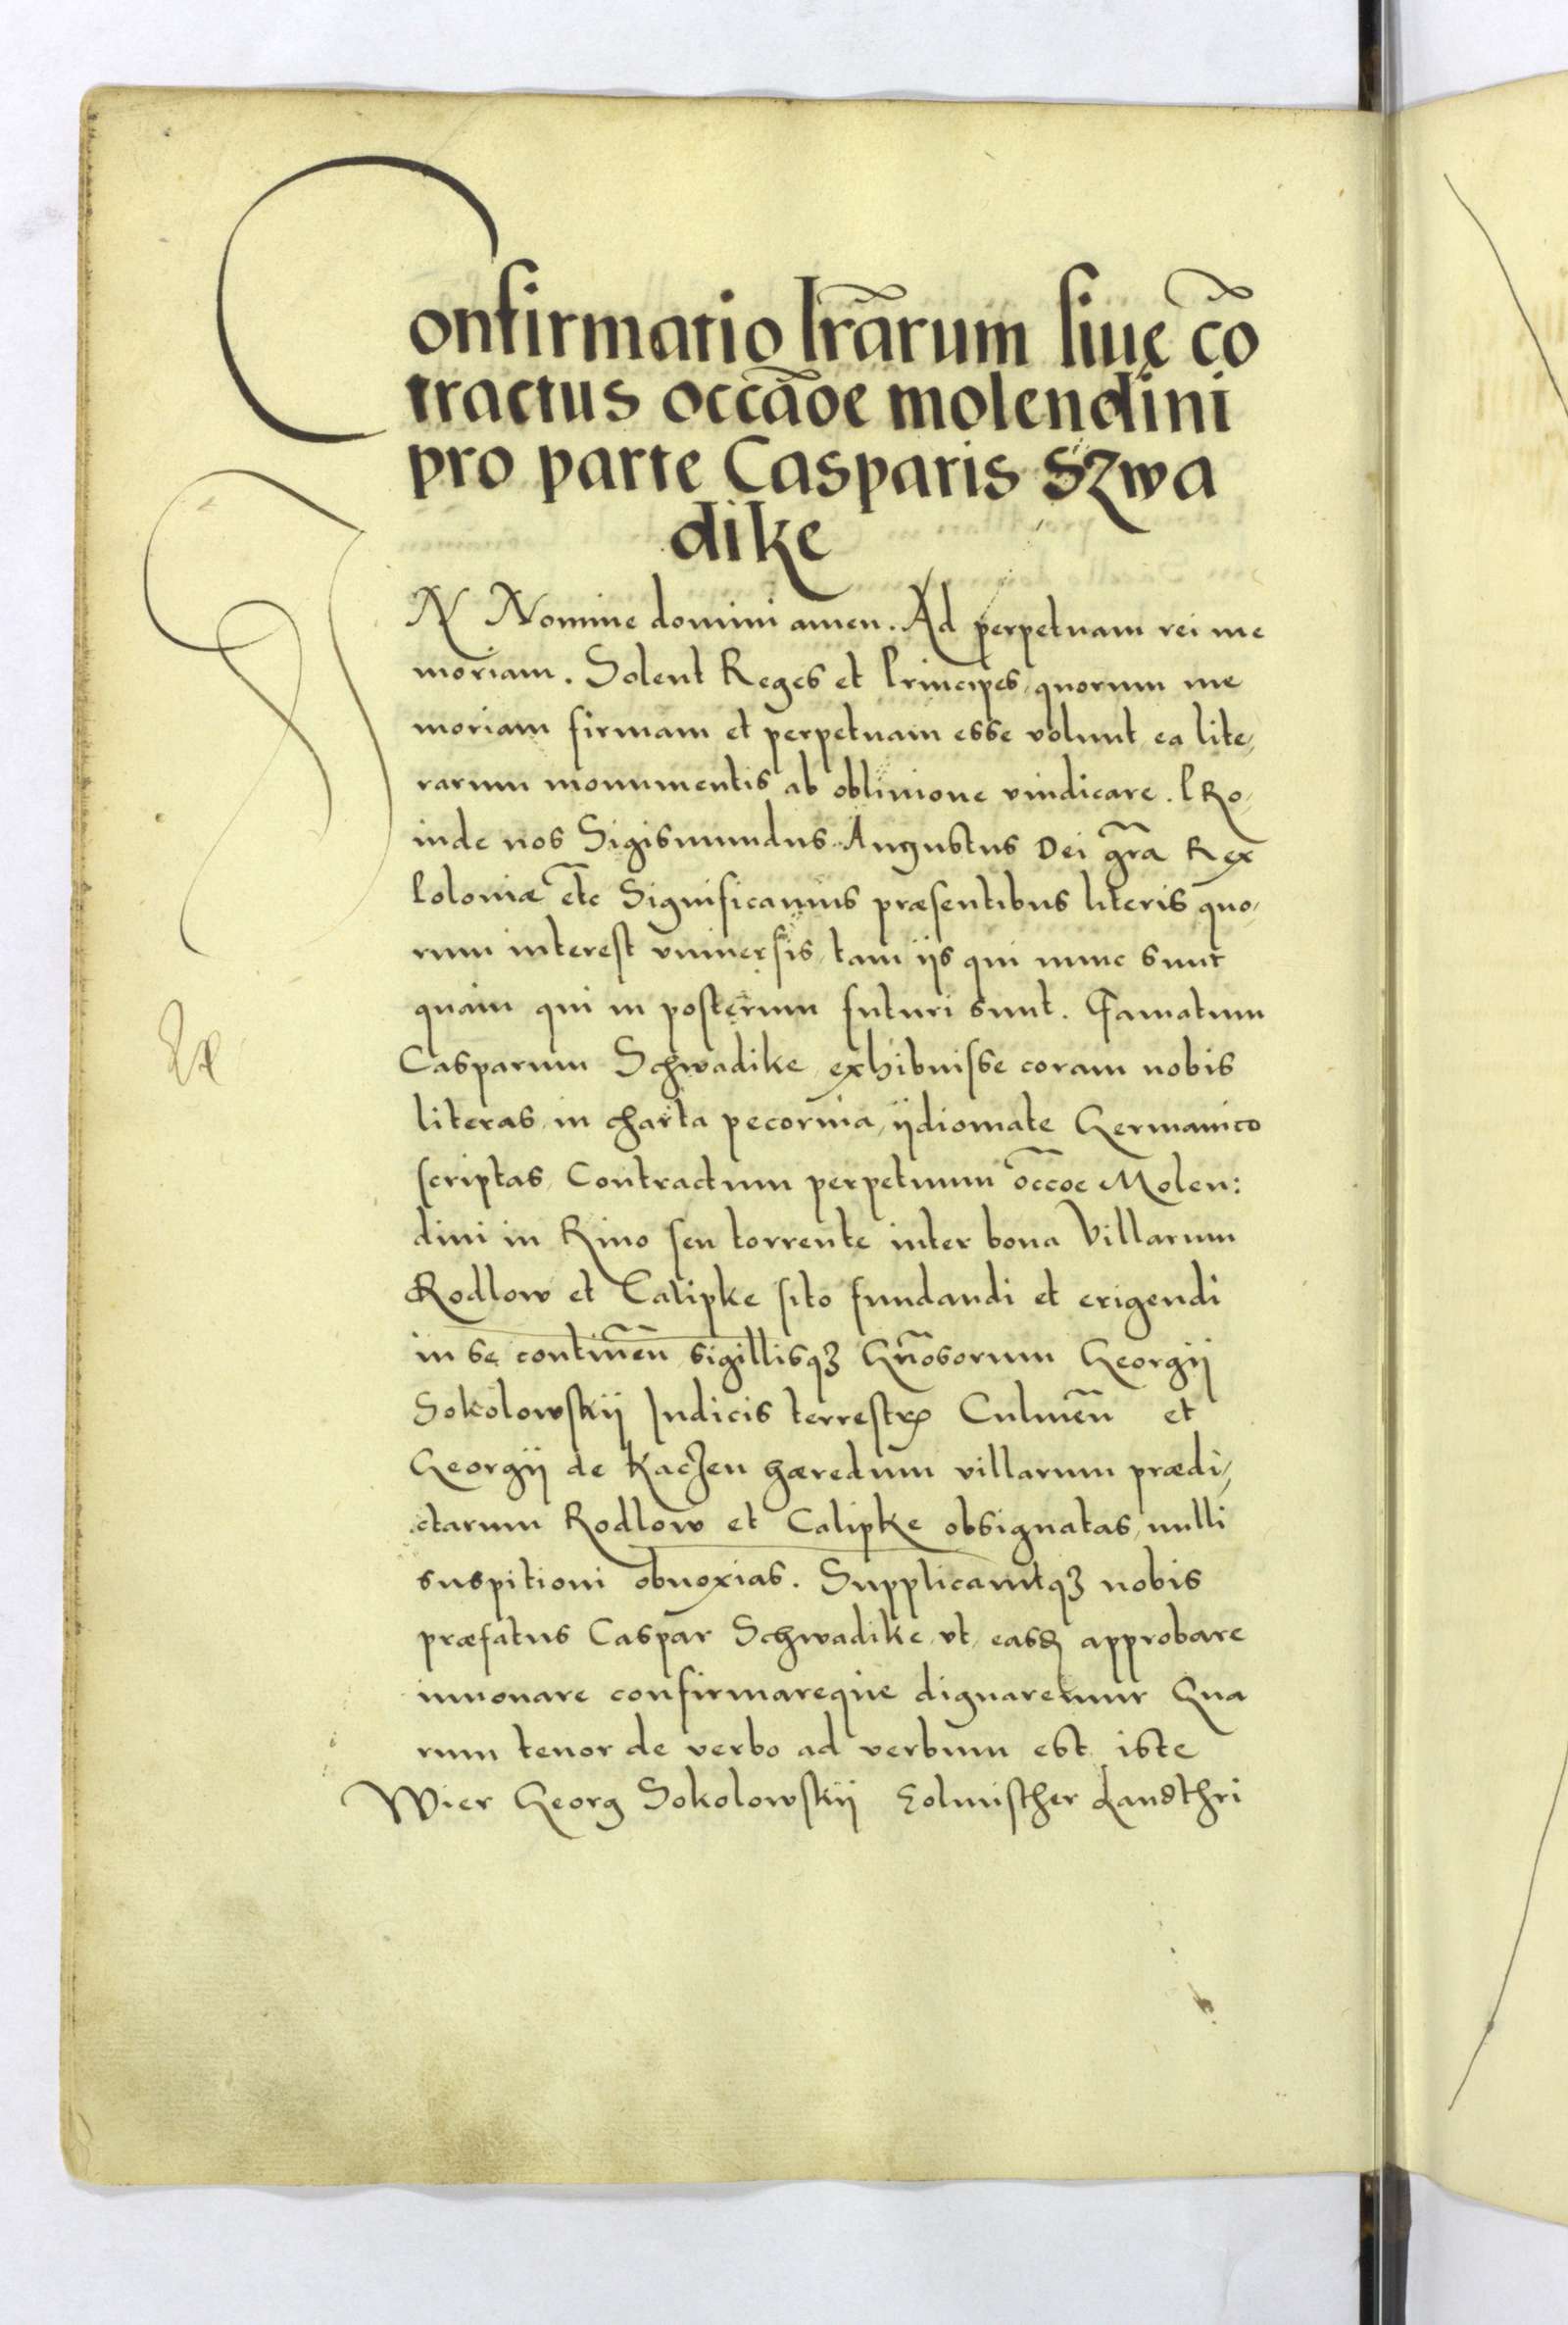 Confirmatio lr̃arum siue cõ
tractus occãoe molendini
pro parte Casparis Szwa
dike
IN Nomine domini amen. Ad perpetuam rei me
moriam. Solent Reges et Principes, quorum me
moriam firmam et perpetuam esse volunt, ea lite,
rarum monumentis ab obliuione vindicare. PRo,
inde nos Sigismundus Augustus Dei gr̃a Rex
Poloniæ etc̃ Significamus præsentibus literis quo,
rum interest vniuersis, tam ijs qui nunc sunt
quàm qui in posterum futuri sunt. Famatum
Casparum Schwadike, exhibuisse coram nobis
literas, in charta pecorina, ijdiomate Germanico
scriptas, Contractum perpetuum occ̃oe Molen:
dini in Rino seu torrente inter bona Villarum
Rodlow et Calipke sito fundandi et erigendi
in se contineñ sigillisqꝫ Gñosorum Georgij
Sokolowskij Iudicis terrestrꝭ Culmeñ et
Georgij de Kaczen hæredum villarum prædi,
ctarum Rodlow et Calipke obsignatas, nulli
suspitioni obnoxias. Supplicauitqꝫ nobis
præfatus Caspar Schwadike, vt, easdꝫ approbare
innouare confirmareque dignaremur Qua
rum tenor de verbo ad verbum est iste
Wier Georg Sokolowskij Colmischer Landthri